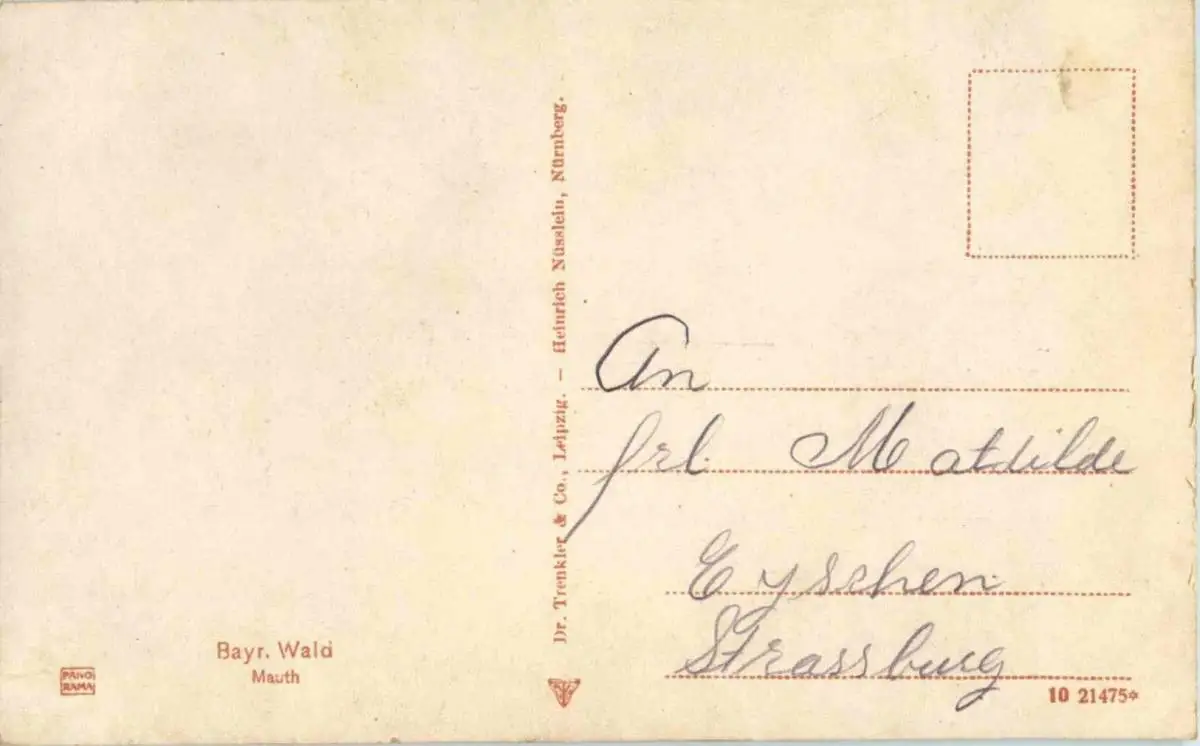 Dr. Trenkler & Co., Leipzig. – Heinrich Nüsslein, Nürnberg.
An
frl. Matdilde
Eysschen
Strassburg
Bayr. Wald
Mauth
PANO
RAMA
10 21475*